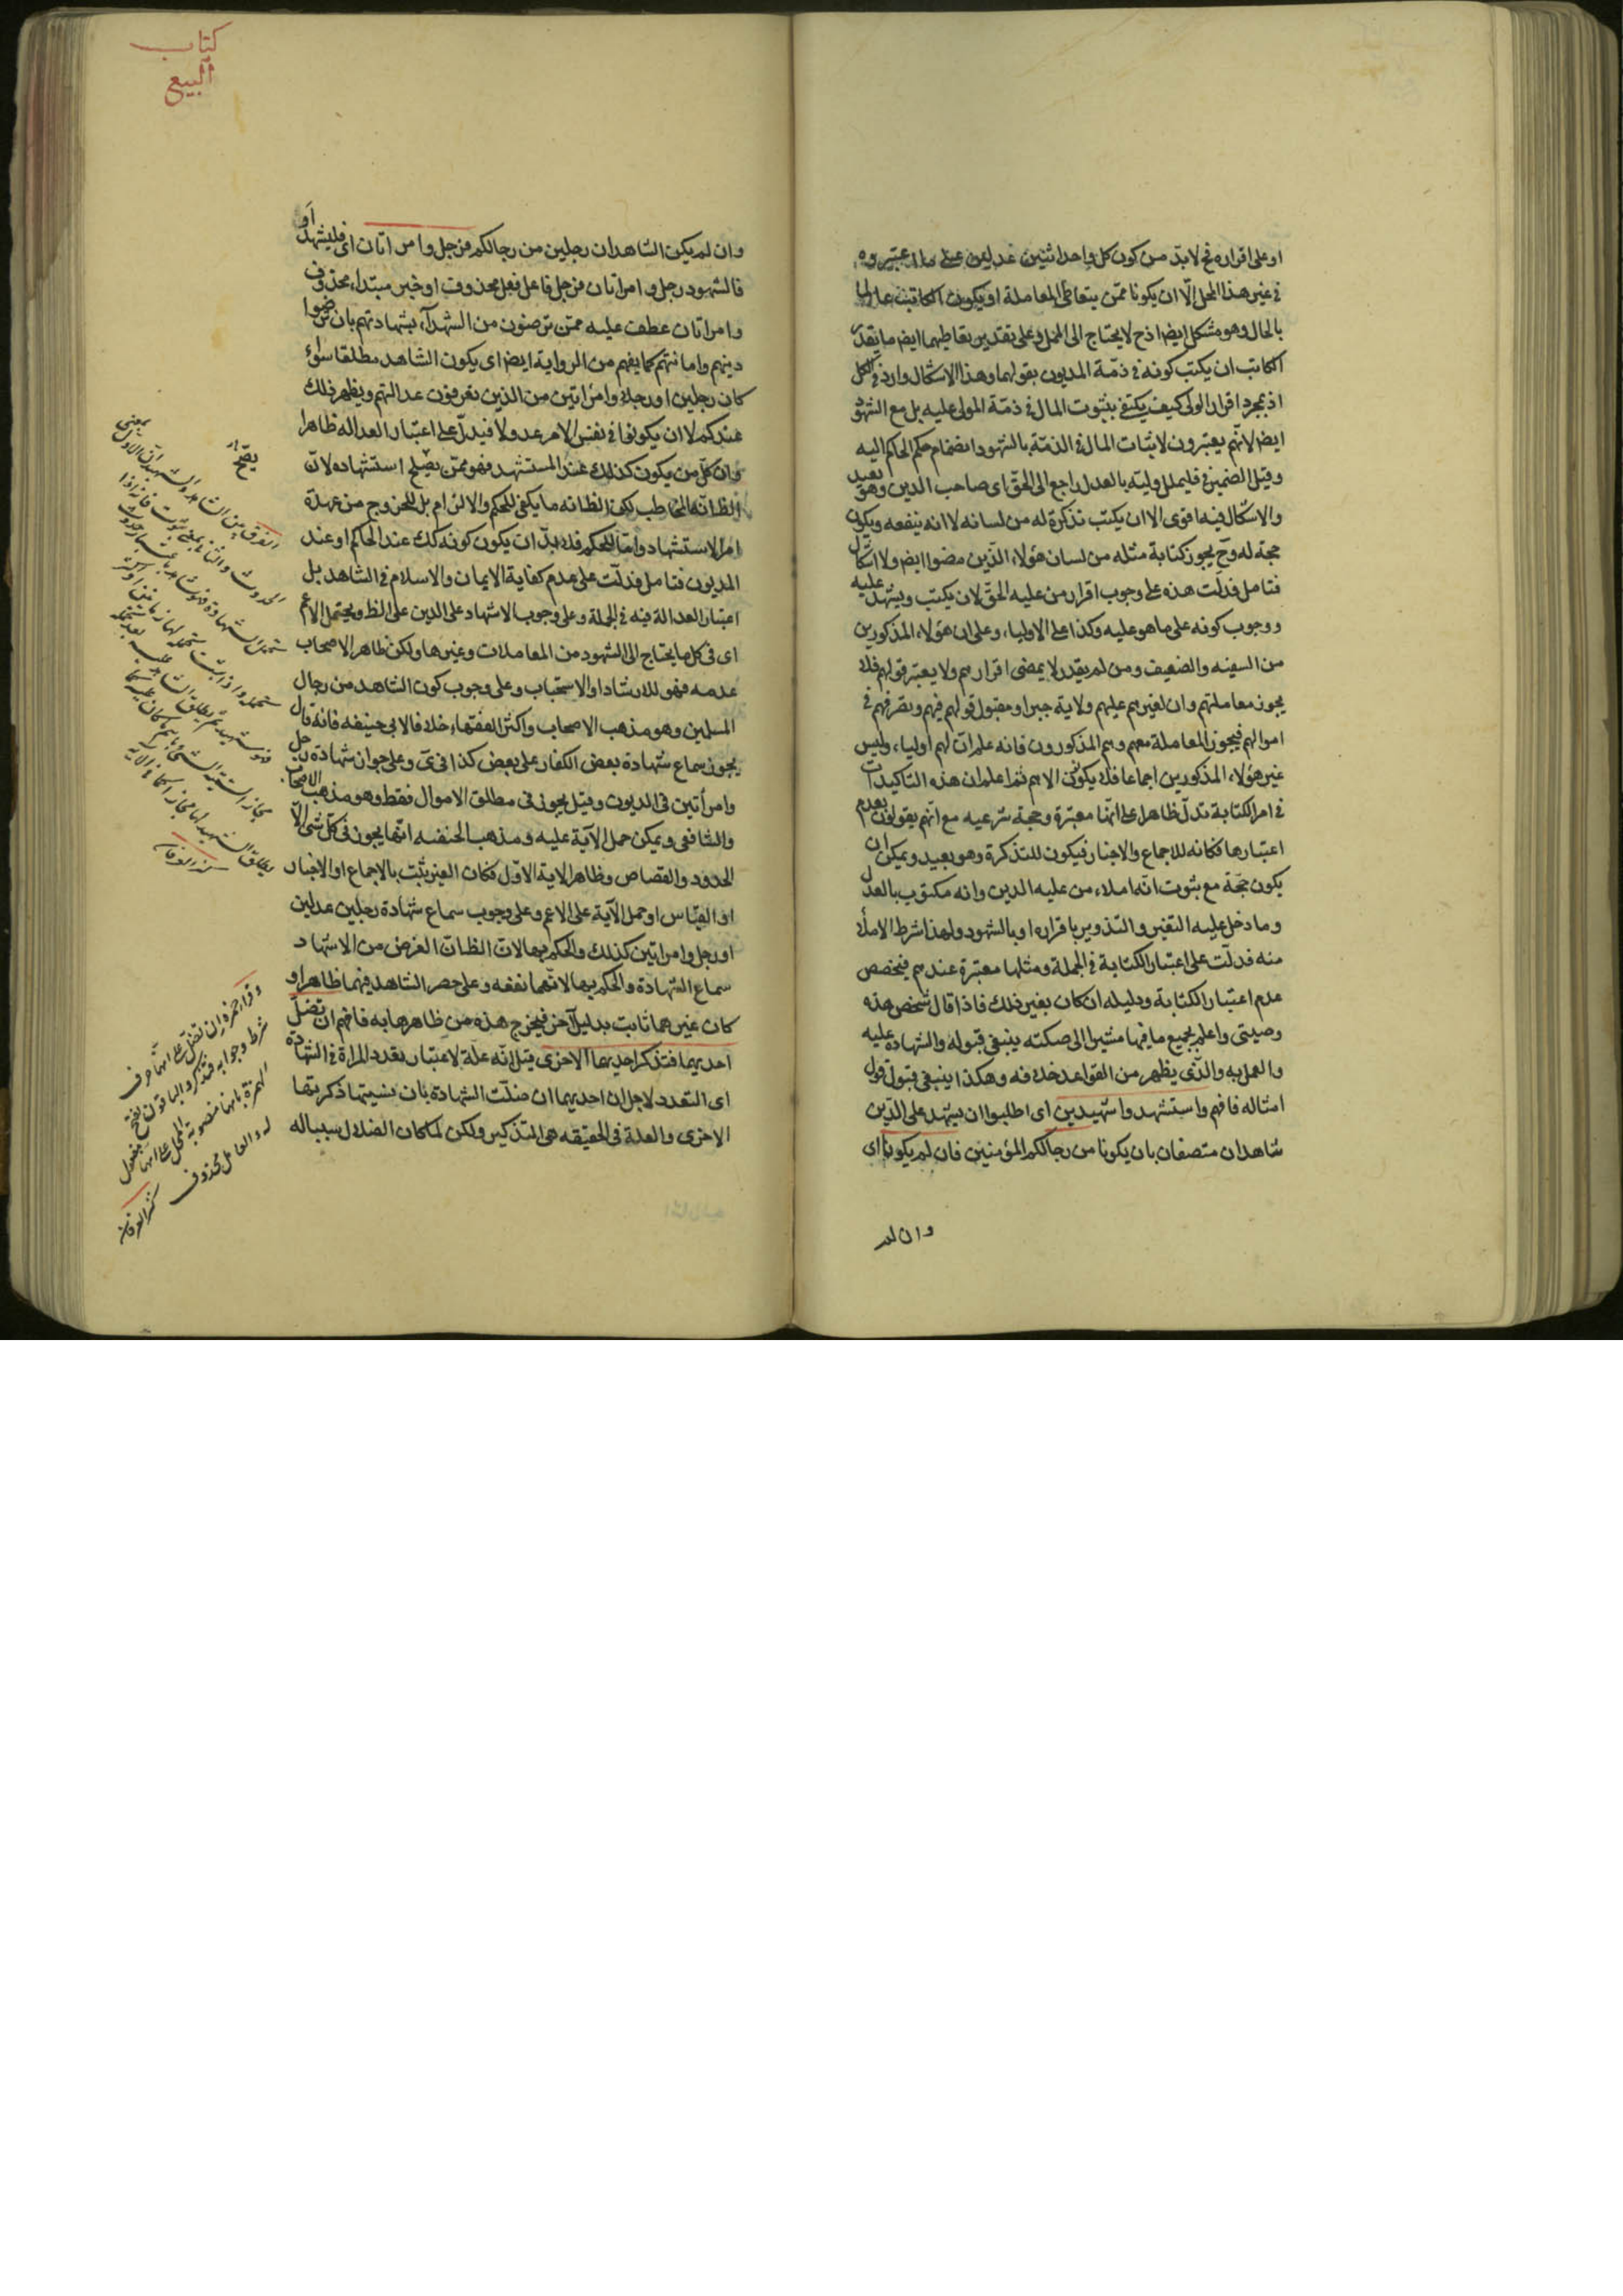 او على اقراره فح لابد من كون كل واحد اثنين عدلين على ما اعتبروه
فى غير هذا المحل الّا ان يكونا ممّن يتعاطى المعاملة او يكون الكاتب عالما
بالحال وهو مشكل ايضا اذح لا يحتاج الى المملل وعلى تقدير تعاطيهما ايض ما يقدر
الكاتب ان يكتب كونه فى ذمّة المديون بقولهما وهذا الاشكال وارد فى الكل
اذ بمجرد اقرار الولى كيف يكتفى بثبوت المال فى ذمّة المولى عليه بل مع الشهود
ايض لانّهم يعتبرون لاثبات المال فى الذمّة بالشهود انضمام حكم الحاكم اليه
وقيل الضمير فى فليملل وليّه بالعدل راجع الى الحق اى صاحب الدين وهو بعيد
والاشكال فيه اقوى الا ان يكتب تذكرة له من لسانه لا انه ينفعه ويكون
حجة له وح يجوز كتابة مثله من لسان هؤلاء الذين مضوا ايض ولا اشكال
فتامل فدلت هذه على وجوب اقرار من عليه الحقّ لان يكتب ويشهد عليه
ووجوب كونه على ما هو عليه وكذا على الاولياء وعلى ان هؤلاء المذكورين
من السفيه والضعيف ومن لم يقدر لا يمضى اقرارهم ولا يعتبر قولهم فلا
يجوز معاملتهم وان لغيرهم عليهم ولاية جبرا ومقبول قولهم فيهم وتصرفهم فى
اموالهم فيجوز المعاملة معهم وهم المذكورون فانه علم ان لهم اولياء وليس
غير هؤلاء المذكورين اجماعا فلا يكون الا هم ثم اعلم ان هذه التاكيدات
فى امر الكتابة تدلّ ظاهرا على انّها معتبرة وحجة شرعيه مع انّهم يقولون بعدم
اعتبارها فكانه للاجماع والاخبار فيكون للتذكرة وهو بعيد ويمكن ان
يكون حجّة مع ثبوت انّه املاء من عليه الدين وانه مكتوب بالعدل
وما دخل عليه التغير والتذوير باقراره او بالشهود ولهذا شرط الاملاء
منه فدلّت على اعتبار الكتابة فى الجملة ومثلها معتبرة عندهم فيخصص
عدم اعتبار الكتابة ودليله ان كان بغير ذلك فاذا قال شخص هذه
وصيتى واعلم بجميع ما فيها مشيرا الى صكته ينبغى قبوله والشهادة عليه
والعمل به والّذى يظهر من القواعد خلافه وهكذا ينبغى قبول قول
امثاله فافهم واستشهدوا شهيدين اى اطلبوا ان يشهد على الدّين
شاهدان متصفان بان يكونا من رجالكم المؤمنين فان لم يكونا اى
وان لم
كتاب
البيع
وان لم يكن الشاهدان رجلين من رجالكم فرجل وامراتان اى فليشهد او
فالشهود رجل وامراتان فرجل فاعل فعل محذوف او خبر مبتداء محذوف
وامراتان عطف عليه ممّن ترضون من الشهدآء بشهادتهم بان ترضوا
دينهم وامانتهم كما يفهم من الرواية ايض اى يكون الشاهد مطلقا سواء
كان رجلين او رجلا وامراتين من الذين تعرفون عدالتهم ويظهر ذلك
عندكم لا ان يكونوا فى نفس الامر عدولا فيدلّ على اعتبار العداله ظاهرا
وان كلّ من يكون كذلك عند المستشهد فهو ممّن يصلح استشهاده لانّ
الظ انّه المخاطب لكن الظ انه ما يكفى للحكم والالزام بل للخروج من عهدة
امر الاستشهاد وامّا للحكم فلا بدّ ان يكون كونه كك عند الحاكم او عند
المديون فتامل فدلّت على عدم كفاية الايمان والاسلام فى الشاهد بل
اعتبار العدالة فيه فى الجملة وعلى وجوب الاشهاد على الدين على الظ ويحتمل الاعم
اى فى كل ما يحتاج الى الشهود من المعاملات وغيرها ولكن ظاهر الاصحاب
عدمه فهو للارشاد او الاستحباب وعلى وجوب كون الشاهد من رجال
المسلمين وهو مذهب الاصحاب واكثر الفقهاء خلافا لابى حنيفه فانه قال
يجوز سماع شهادة بعض الكفار على بعض كذا فى ى وعلى جواز شهادة رجل
وامرأتين فى الديون وقيل يجوز فى مطلق الاموال فقط وهو مذهب الاصحاب
والشافعى ويمكن حمل الآية عليه ومذهب الحنفيه انّها يجوز فى كلّ شى الّا
الحدود والقصاص وظاهر الاية الاوّل فكان الغير يثبت بالاجماع او الاخبار
او القياس او حمل الآية على الاعم وعلى وجوب سماع شهادة رجلين عدلين
او رجل وامراتين كذلك والحكم بهما لان الظ ان الغرض من الاشهاد
سماع الشهادة والحكم بها لانّهما نفعه وعلى حصر الشاهد فيهما ظاهرا و
كان غيرهما ثابت بدليل آخر فيخرج هذه من ظاهرها به فافهم ان تضلّ
احديهما فتذكر احديهما الاخرى قيل انّه علّة لاعتبار تعدد المراة فى الشهادة
اى التعدد لاجل ان احديهما ان ضلّت الشهادة بان نسيتها ذكرتها
الاخرى والعلة فى الحقيقه هى التذكير ولكن لما كان الضلال سبباله
الفرق بين الشاهد والشهيد ان الاول بمعنى
الحدوث والثانى بمعنى الثبوت فانه اذا
تحمل الشهادة فهو شاهد باعتبار حدوث
وقرا حمزة ان تضل على انها حرف
شرط وجوابه فتذكر والباقون بفتح
الهمزة بانها منصوبة المحل على انها مفعول
له والعامل محذوف
كنز العرفان